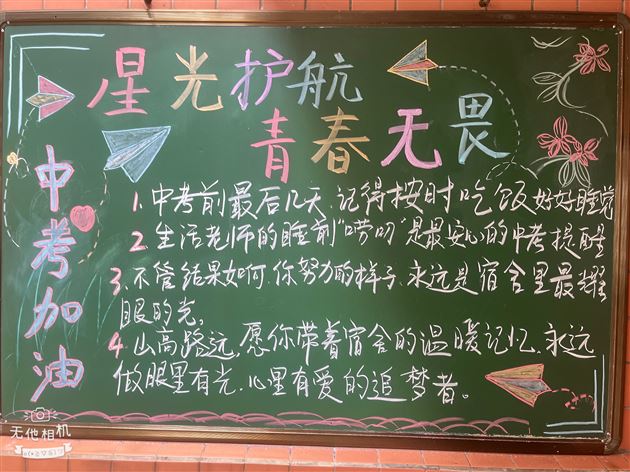 星光护航
青春无畏
中考加油
1.中考前最后几天、记得按时吃饭好好睡觉
2.生活老师的睡前“唠叨”是最安心的中考提醒
3、不管结果如何,你努力的样子、永远是宿舍里最耀
眼的光,
4.山高路远,愿你带着宿舍的温暖记忆、永远
做眼里有光、心里有爱的追梦者。
无他相机